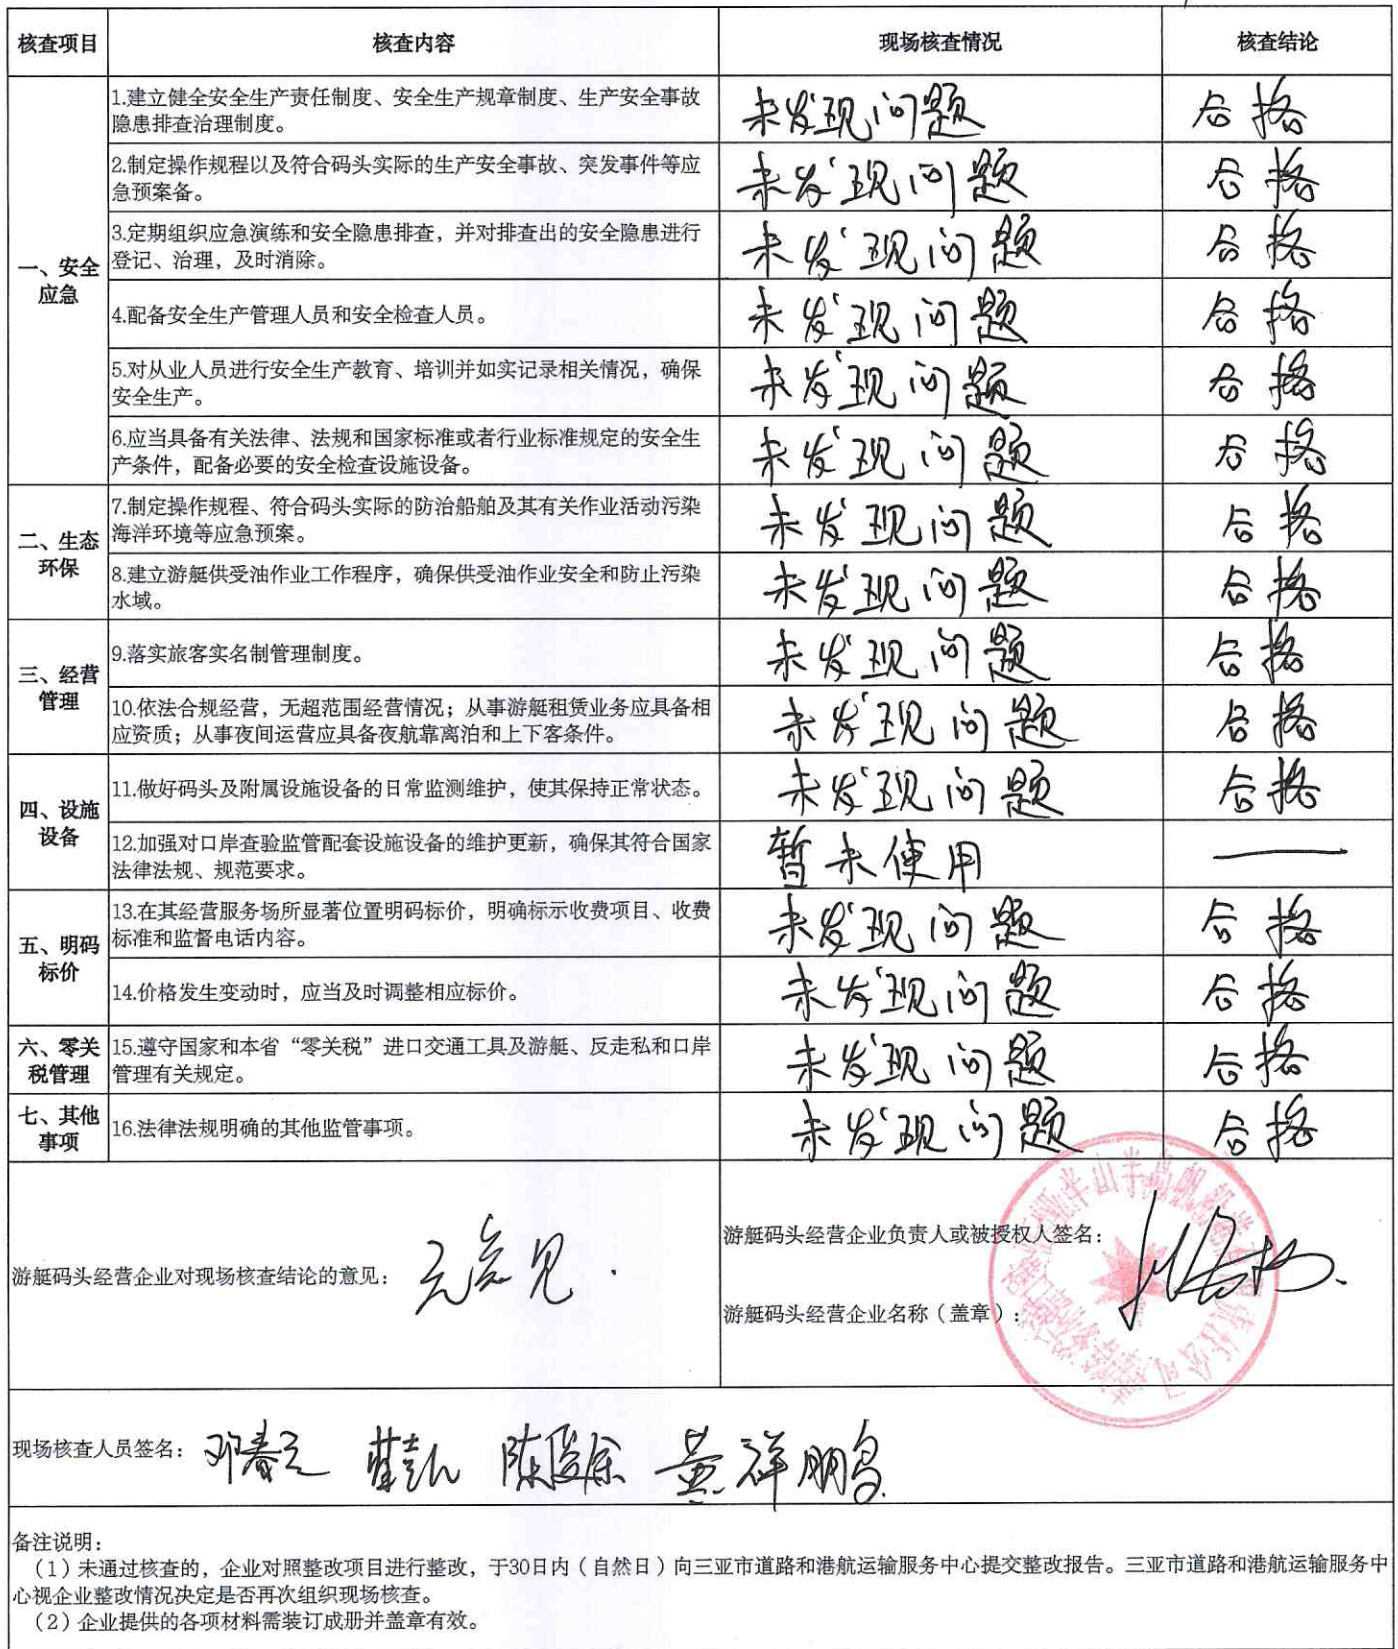 核查项目 核查内容 现场核查情况 核查结论
一、安全
应急
1.建立健全安全生产责任制度、安全生产规章制度、生产安全事故
隐患排查治理制度。
未发现问题 合格
2.制定操作规程以及符合码头实际的生产安全事故、突发事件等应
急预案备。
未发现问题 合格
3.定期组织应急演练和安全隐患排查，并对排查出的安全隐患进行
登记、治理，及时消除。
未发现问题 合格
4.配备安全生产管理人员和安全检查人员。
未发现问题 合格
5.对从业人员进行安全生产教育、培训并如实记录相关情况，确保
安全生产。
未发现问题 合格
6.应当具备有关法律、法规和国家标准或者行业标准规定的安全生
产条件，配备必要的安全检查设施设备。
未发现问题 合格
二、生态
环保
7.制定操作规程、符合码头实际的防治船舶及其有关作业活动污染
海洋环境等应急预案。
未发现问题 合格
8.建立游艇供受油作业工作程序，确保供受油作业安全和防止污染
水域。
未发现问题 合格
三、经营
管理
9.落实旅客实名制管理制度。
未发现问题 合格
10.依法合规经营，无超范围经营情况；从事游艇租赁业务应具备相
应资质；从事夜间运营应具备夜航靠离泊和上下客条件。
未发现问题 合格
四、设施
设备
11.做好码头及附属设施设备的日常监测维护，使其保持正常状态。
未发现问题 合格
12.加强对口岸查验监管配套设施设备的维护更新，确保其符合国家
法律法规、规范要求。
暂未使用 ——
五、明码
标价
13.在其经营服务场所显著位置明码标价，明确标示收费项目、收费
标准和监督电话内容。
未发现问题 合格
14.价格发生变动时，应当及时调整相应标价。
未发现问题 合格
六、零关
税管理
15.遵守国家和本省“零关税”进口交通工具及游艇、反走私和口岸
管理有关规定。
未发现问题 合格
七、其他
事项
16.法律法规明确的其他监管事项。
未发现问题 合格
游艇码头经营企业对现场核查结论的意见： 无意见.
游艇码头经营企业负责人或被授权人签名：
游艇码头经营企业名称（盖章）：
现场核查人员签名： 邓春元 黄祥鹏
备注说明：
（1）未通过核查的，企业对照整改项目进行整改，于30日内（自然日）向三亚市道路和港航运输服务中心提交整改报告。三亚市道路和港航运输服务中
心视企业整改情况决定是否再次组织现场核查。
（2）企业提供的各项材料需装订成册并盖章有效。